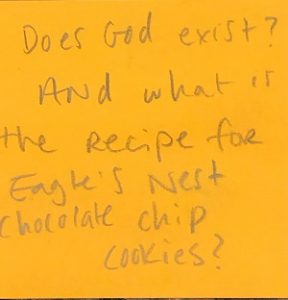 Does God exist?
And what is
the recipe for
Eagle's Nest
chocolate chip
cookies?